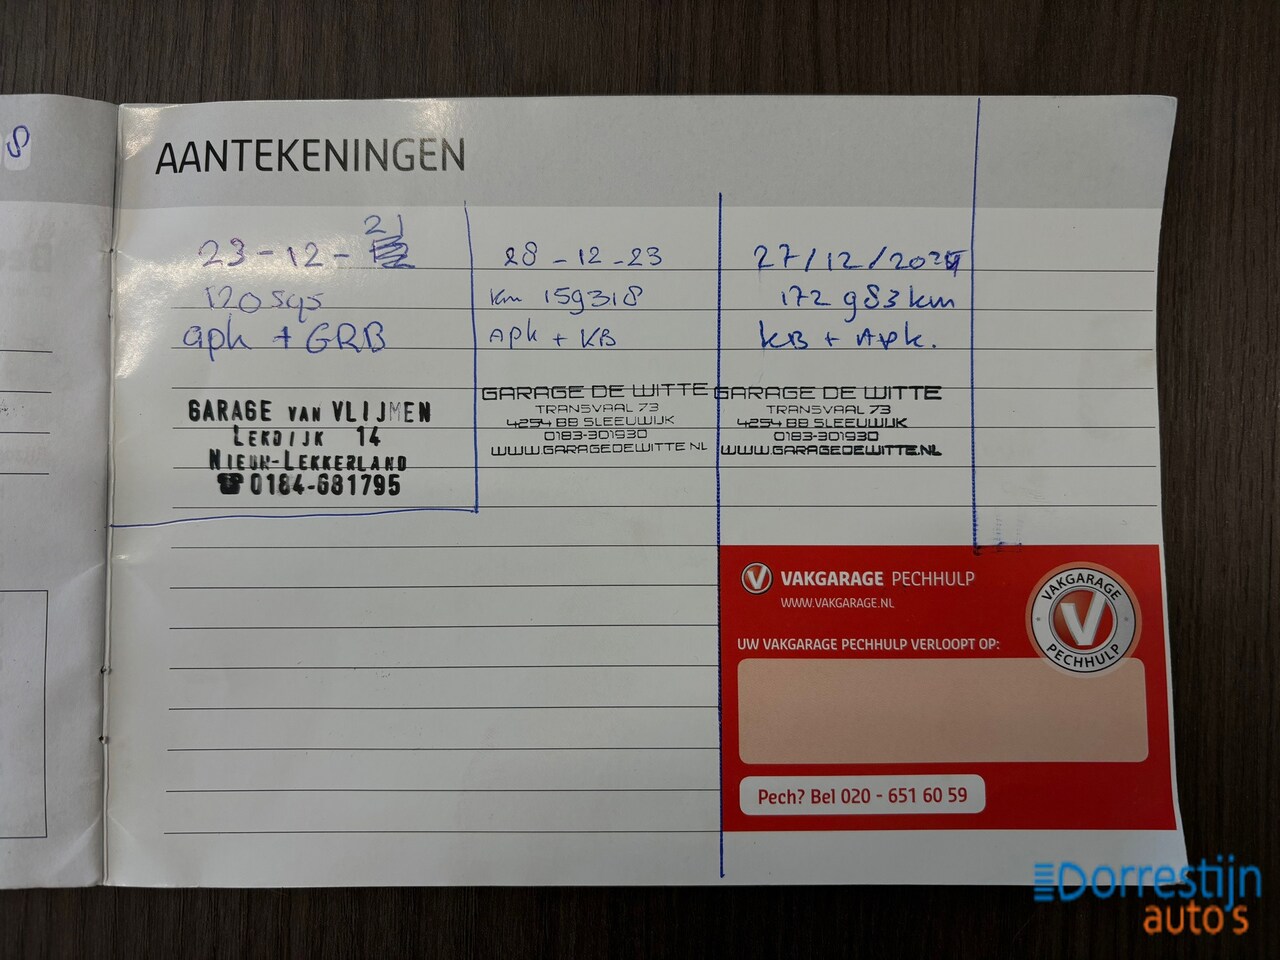 8
AANTEKENINGEN
23-12-21
apk + GRB
GARAGE VAN VLIJMEN
LEKDIJK 14
NIEUW-LEKKERLAND
☎ 0184-681795
28-12-23
km 159318
Apk + KB
GARAGE DE WITTE
TRANSVAAL 73
4254 BB SLEEUWIJK
0183-301930
WWW.GARAGEDEWITTE.NL
27/12/2024
172 983 km
KB + Apk.
GARAGE DE WITTE
TRANSVAAL 73
4254 BB SLEEUWIJK
0183-301930
WWW.GARAGEDEWITTE.NL
VAKGARAGE PECHHULP
WWW.VAKGARAGE.NL
UW VAKGARAGE PECHHULP VERLOOPT OP:
VAKGARAGE
V
PECHHULP
Pech? Bel 020 - 651 60 59
Dorrestijn
auto's